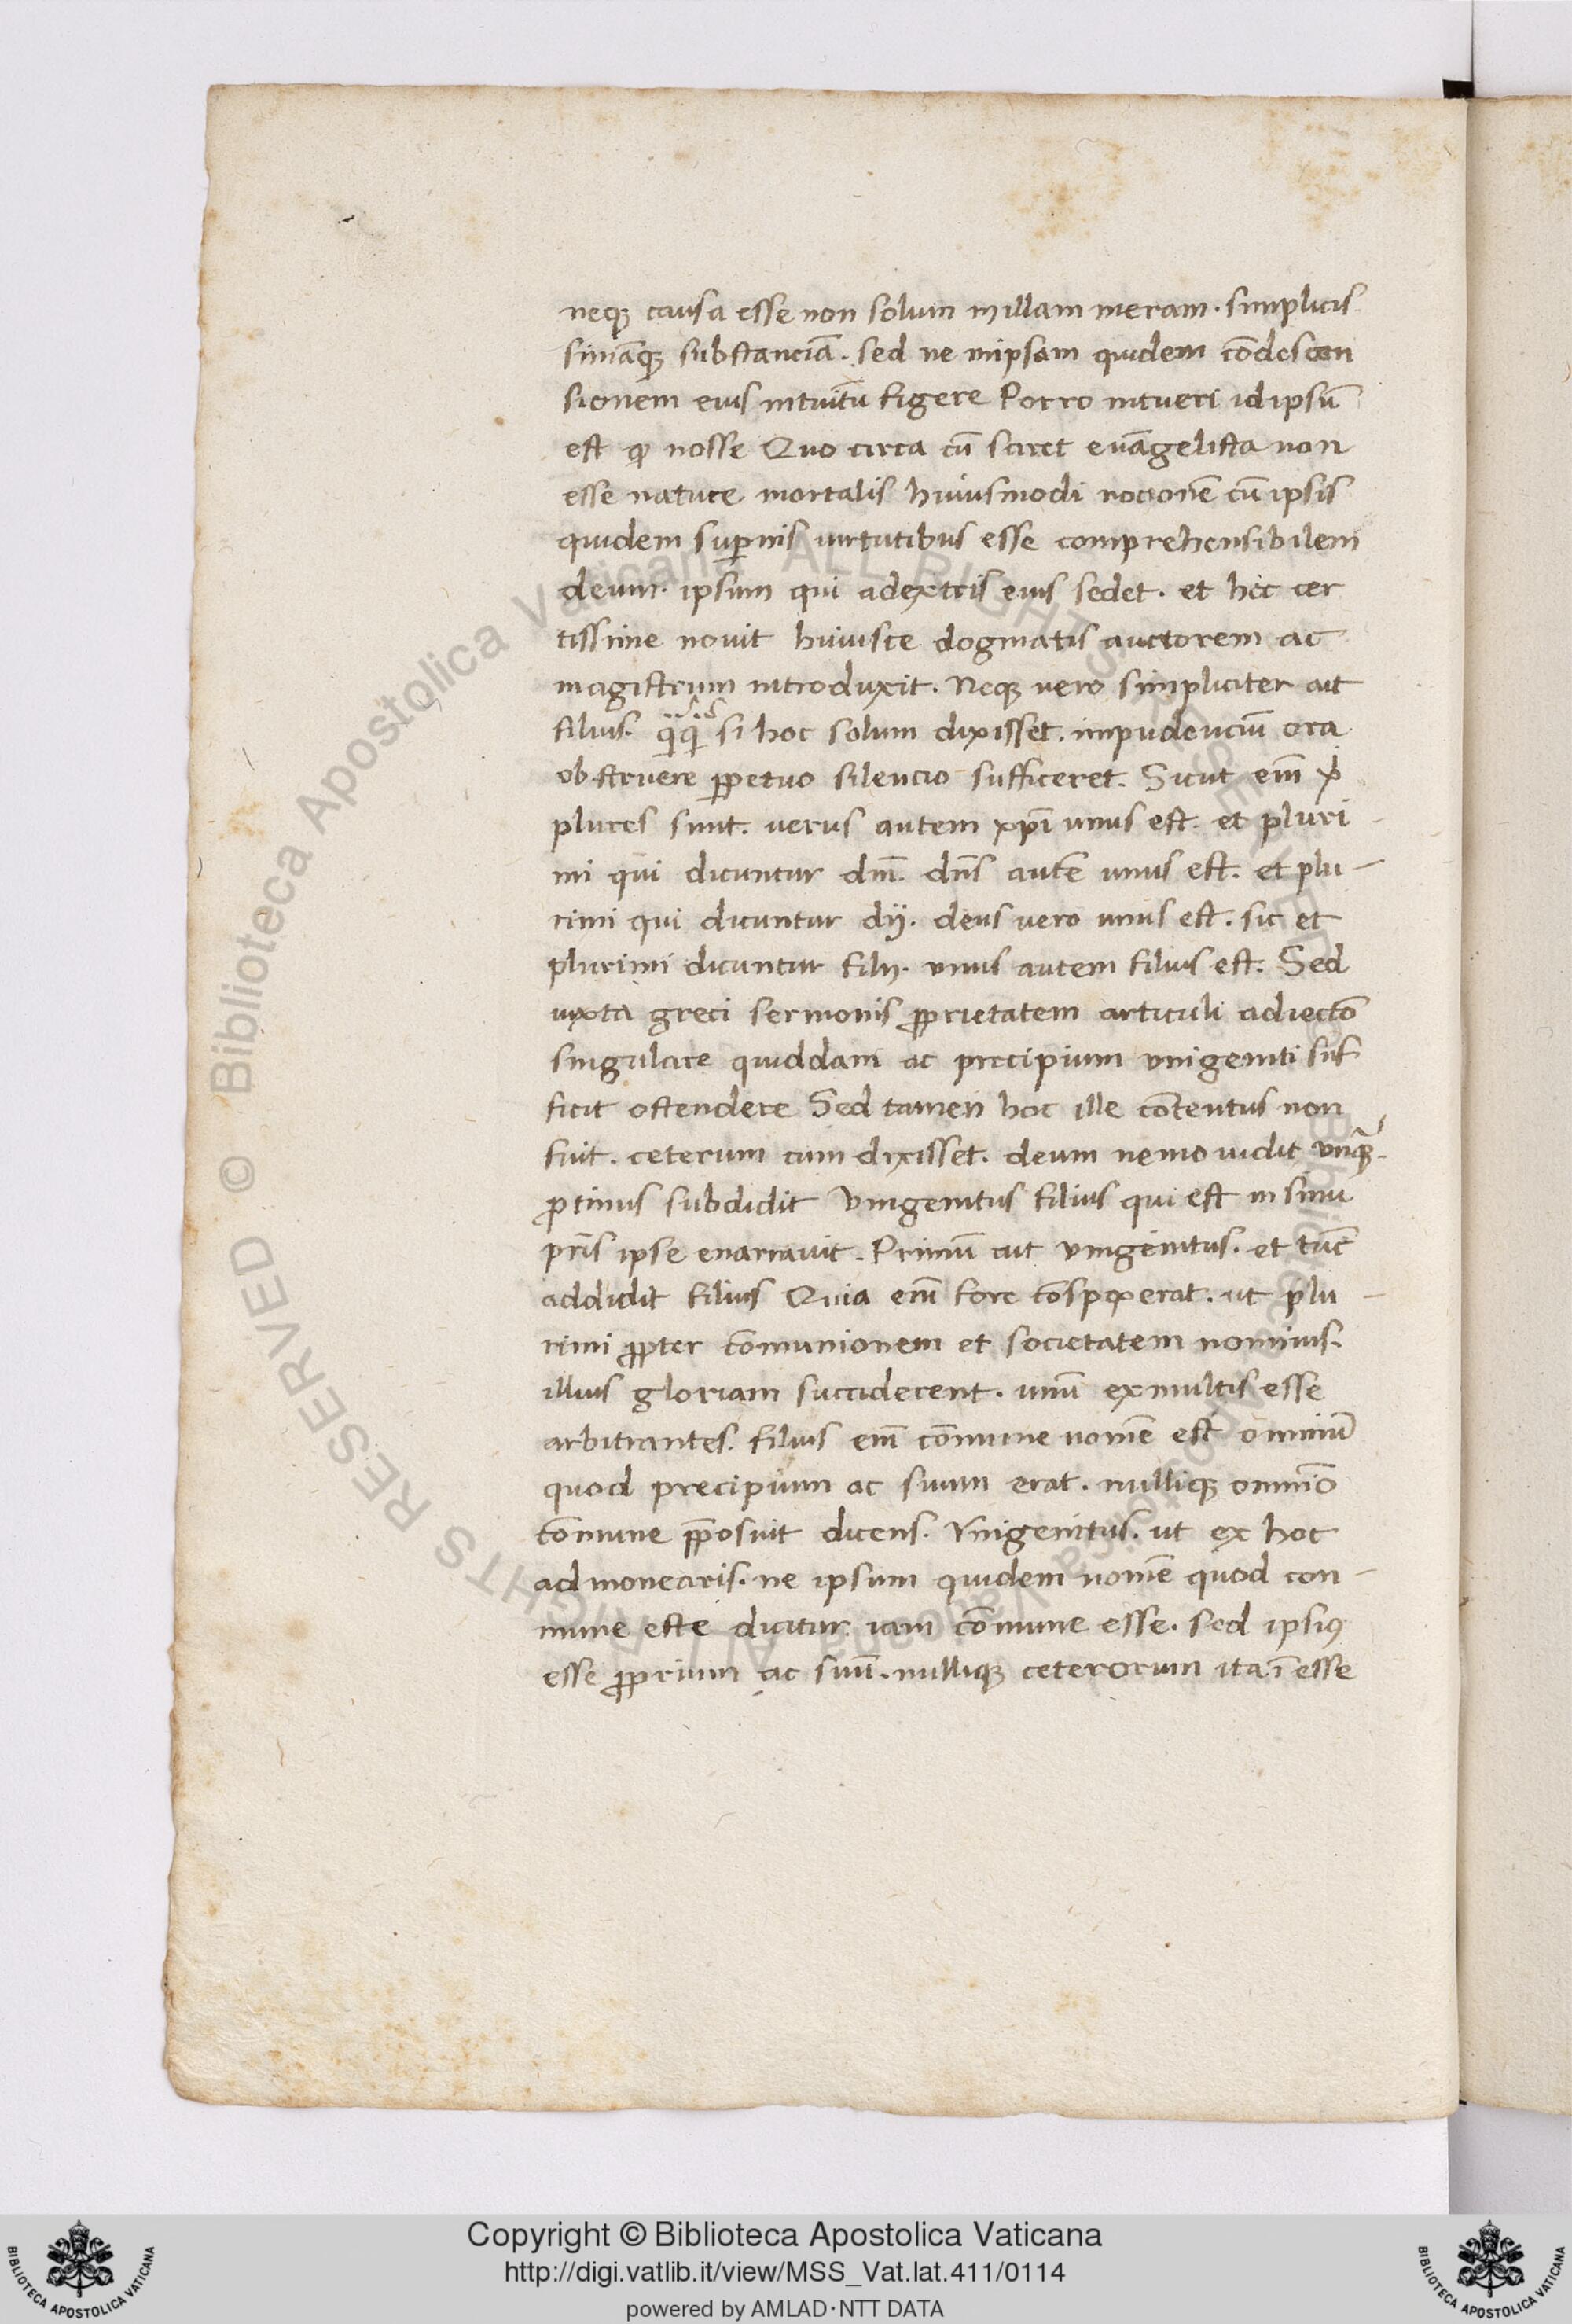 neqꝫ causa esse non solum in illam meram · simplicis
simāqꝫ substanciā · sed ne in ipsam quidem cōdescen
sionem eius intuitū figere Porro intueri id ipsū
est qđ nosse Quo circa cū sciret evāgelista non
esse nature mortalis huiusmodi nocionē cū ipsis
quidem sup̄nis uirtutibus esse comprehensibilem
deum · ipsum qui adextris eius sedet · et hec cer
tissime novit huiusce dogmatis auctorem ac
magistrum introduxit . Neqꝫ uero simpliciter ait
filius . si hoc solum dixisset . impudenciū ora
obstruere ꝑpetuo silencio sufficeret . Sicut em̄ xp̄i
plures sunt . verus autem xp̄s unus est . et pluri
mi qui dicuntur dn̄i . dn̄s autē unus est . et plu –
rimi qui dicuntur dij . deus vero unus est . sic et
plurimi dicuntur filij . vnus autem filius est . Sed
iuxta greci sermonis ꝓprietatem articuli adiectō
singulare quiddam ac precipuum vnigeniti suf
ficit ostendere Sed tamen hoc ille cōtentus non
fuit . ceterum cum dixisset . deum nemo uidit vnqꝫ .
ꝓtinus subdidit Vnigenitus filius qui est in sinu
pr̄is ipse enarrauit . Primū ait vnigenitus . et tūc
addidit filius Quia em̄ fore cōspexerat . ut plu –
rimi ꝓpter cōmunionem et societatem nominis .
illius gloriam succiderent . unū ex multis esse
arbitrantes . filius em̄ cōmune nomē est omniū
quod precipuum ac suum erat . nulliqꝫ omnīo
cōmune p̄posuit dicens . Vnigenitus . ut ex hoc
ad monearis . ne ipsum quidem nomē quod con –
mune esse dicitur iam cōmune esse . sed ipsiꝰ
esse ꝓprium ac suū . nulliqꝫ ceterorum ita īesse
Copyright © Biblioteca Apostolica Vaticana
http://digi.vatlib.it/view/MSS_Vat.lat.411/0114
powered by AMLAD·NTT DATA
BIBLIOTECA APOSTOLICA VATICANA
BIBLIOTECA APOSTOLICA VATICANA
© Biblioteca Apostolica Vaticana ALL RIGHTS RESERVED
© Biblioteca Apostolica Vaticana ALL RIGHTS RESERVED